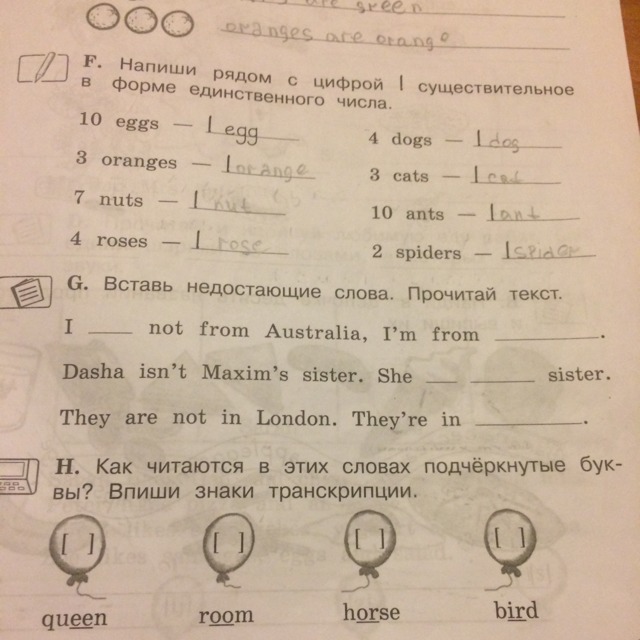 are green
oranges are orange
F. Напиши рядом с цифрой 1 существительное
в форме единственного числа.
10 eggs — 1 egg
3 oranges — 1 orange
7 nuts — 1 nut
4 roses — 1 rose
4 dogs — 1 dog
3 cats — 1 cat
10 ants — 1 ant
2 spiders — 1 spider
G. Вставь недостающие слова. Прочитай текст.
I ____ not from Australia, I'm from _________.
Dasha isn't Maxim's sister. She ___ ______ sister.
They are not in London. They're in _________.
H. Как читаются в этих словах подчёркнутые бук-
вы? Впиши знаки транскрипции.
[ ] [ ] [ ] [ ]
queen room horse bird